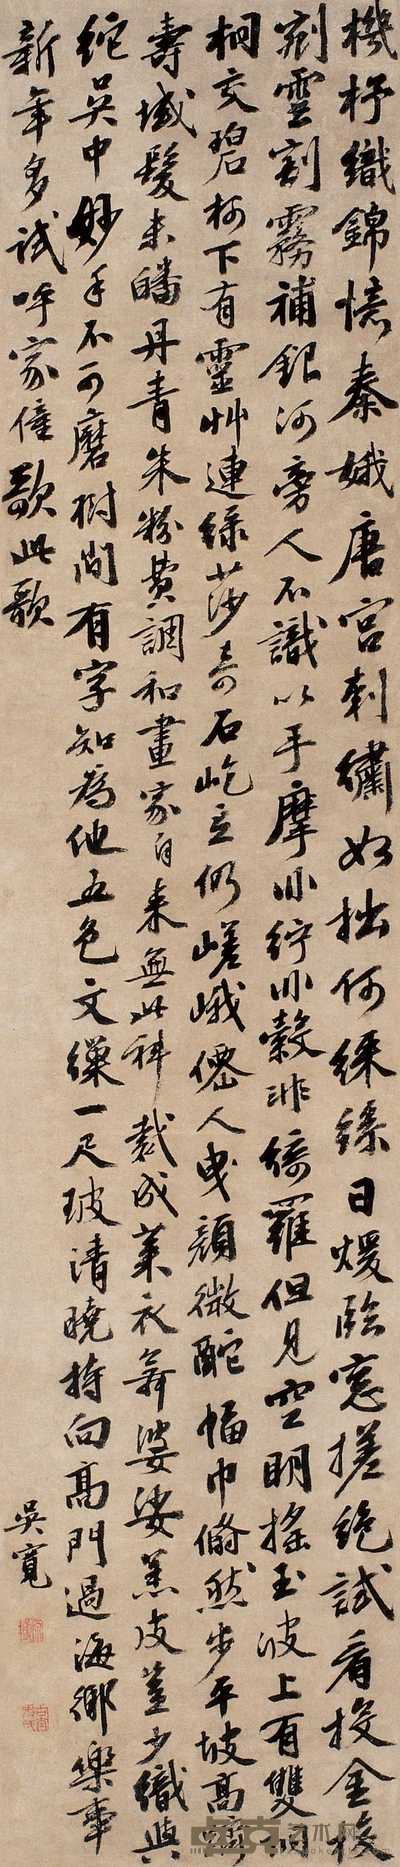 機杼織錦憶秦娥唐宮刺繡如拙何綵絲日煖臨窓搓絶試看投金梭
剜雲割霧補銀河旁人不識以手摩非紵非縠非綺羅但見空明搖玉波上有雙
桐交碧柯下有靈艸連綠莎奇石屹立仍嵯峨僊人曳 顏微酡幅巾翛然步平坡高
壽域髮未皤丹青朱粉費調和畫家自來無此科裁成萊衣舞婆娑羔皮豈少織與
紽吳中妙手不可磨樹間有字知為他五色文繅一尺玻清曉持向高門過海鄉樂事
新年多試呼家僮歌此歌
吳寬